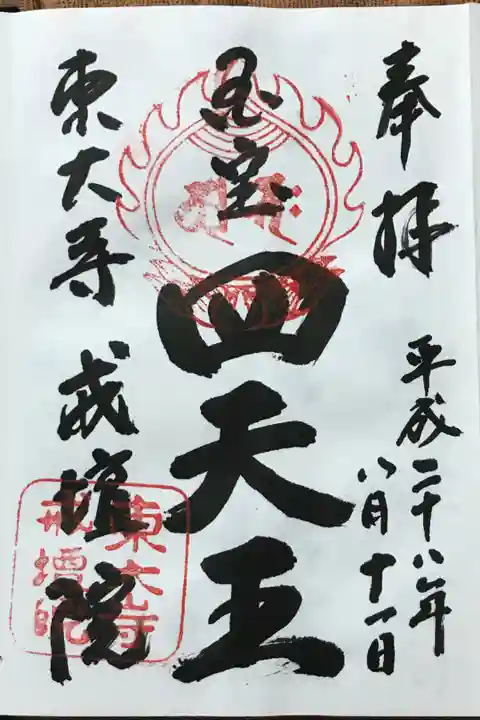 奉拝
平成二十八年
八月十一日
国宝
四天王
東大寺
戒壇院
東大寺
戒壇院